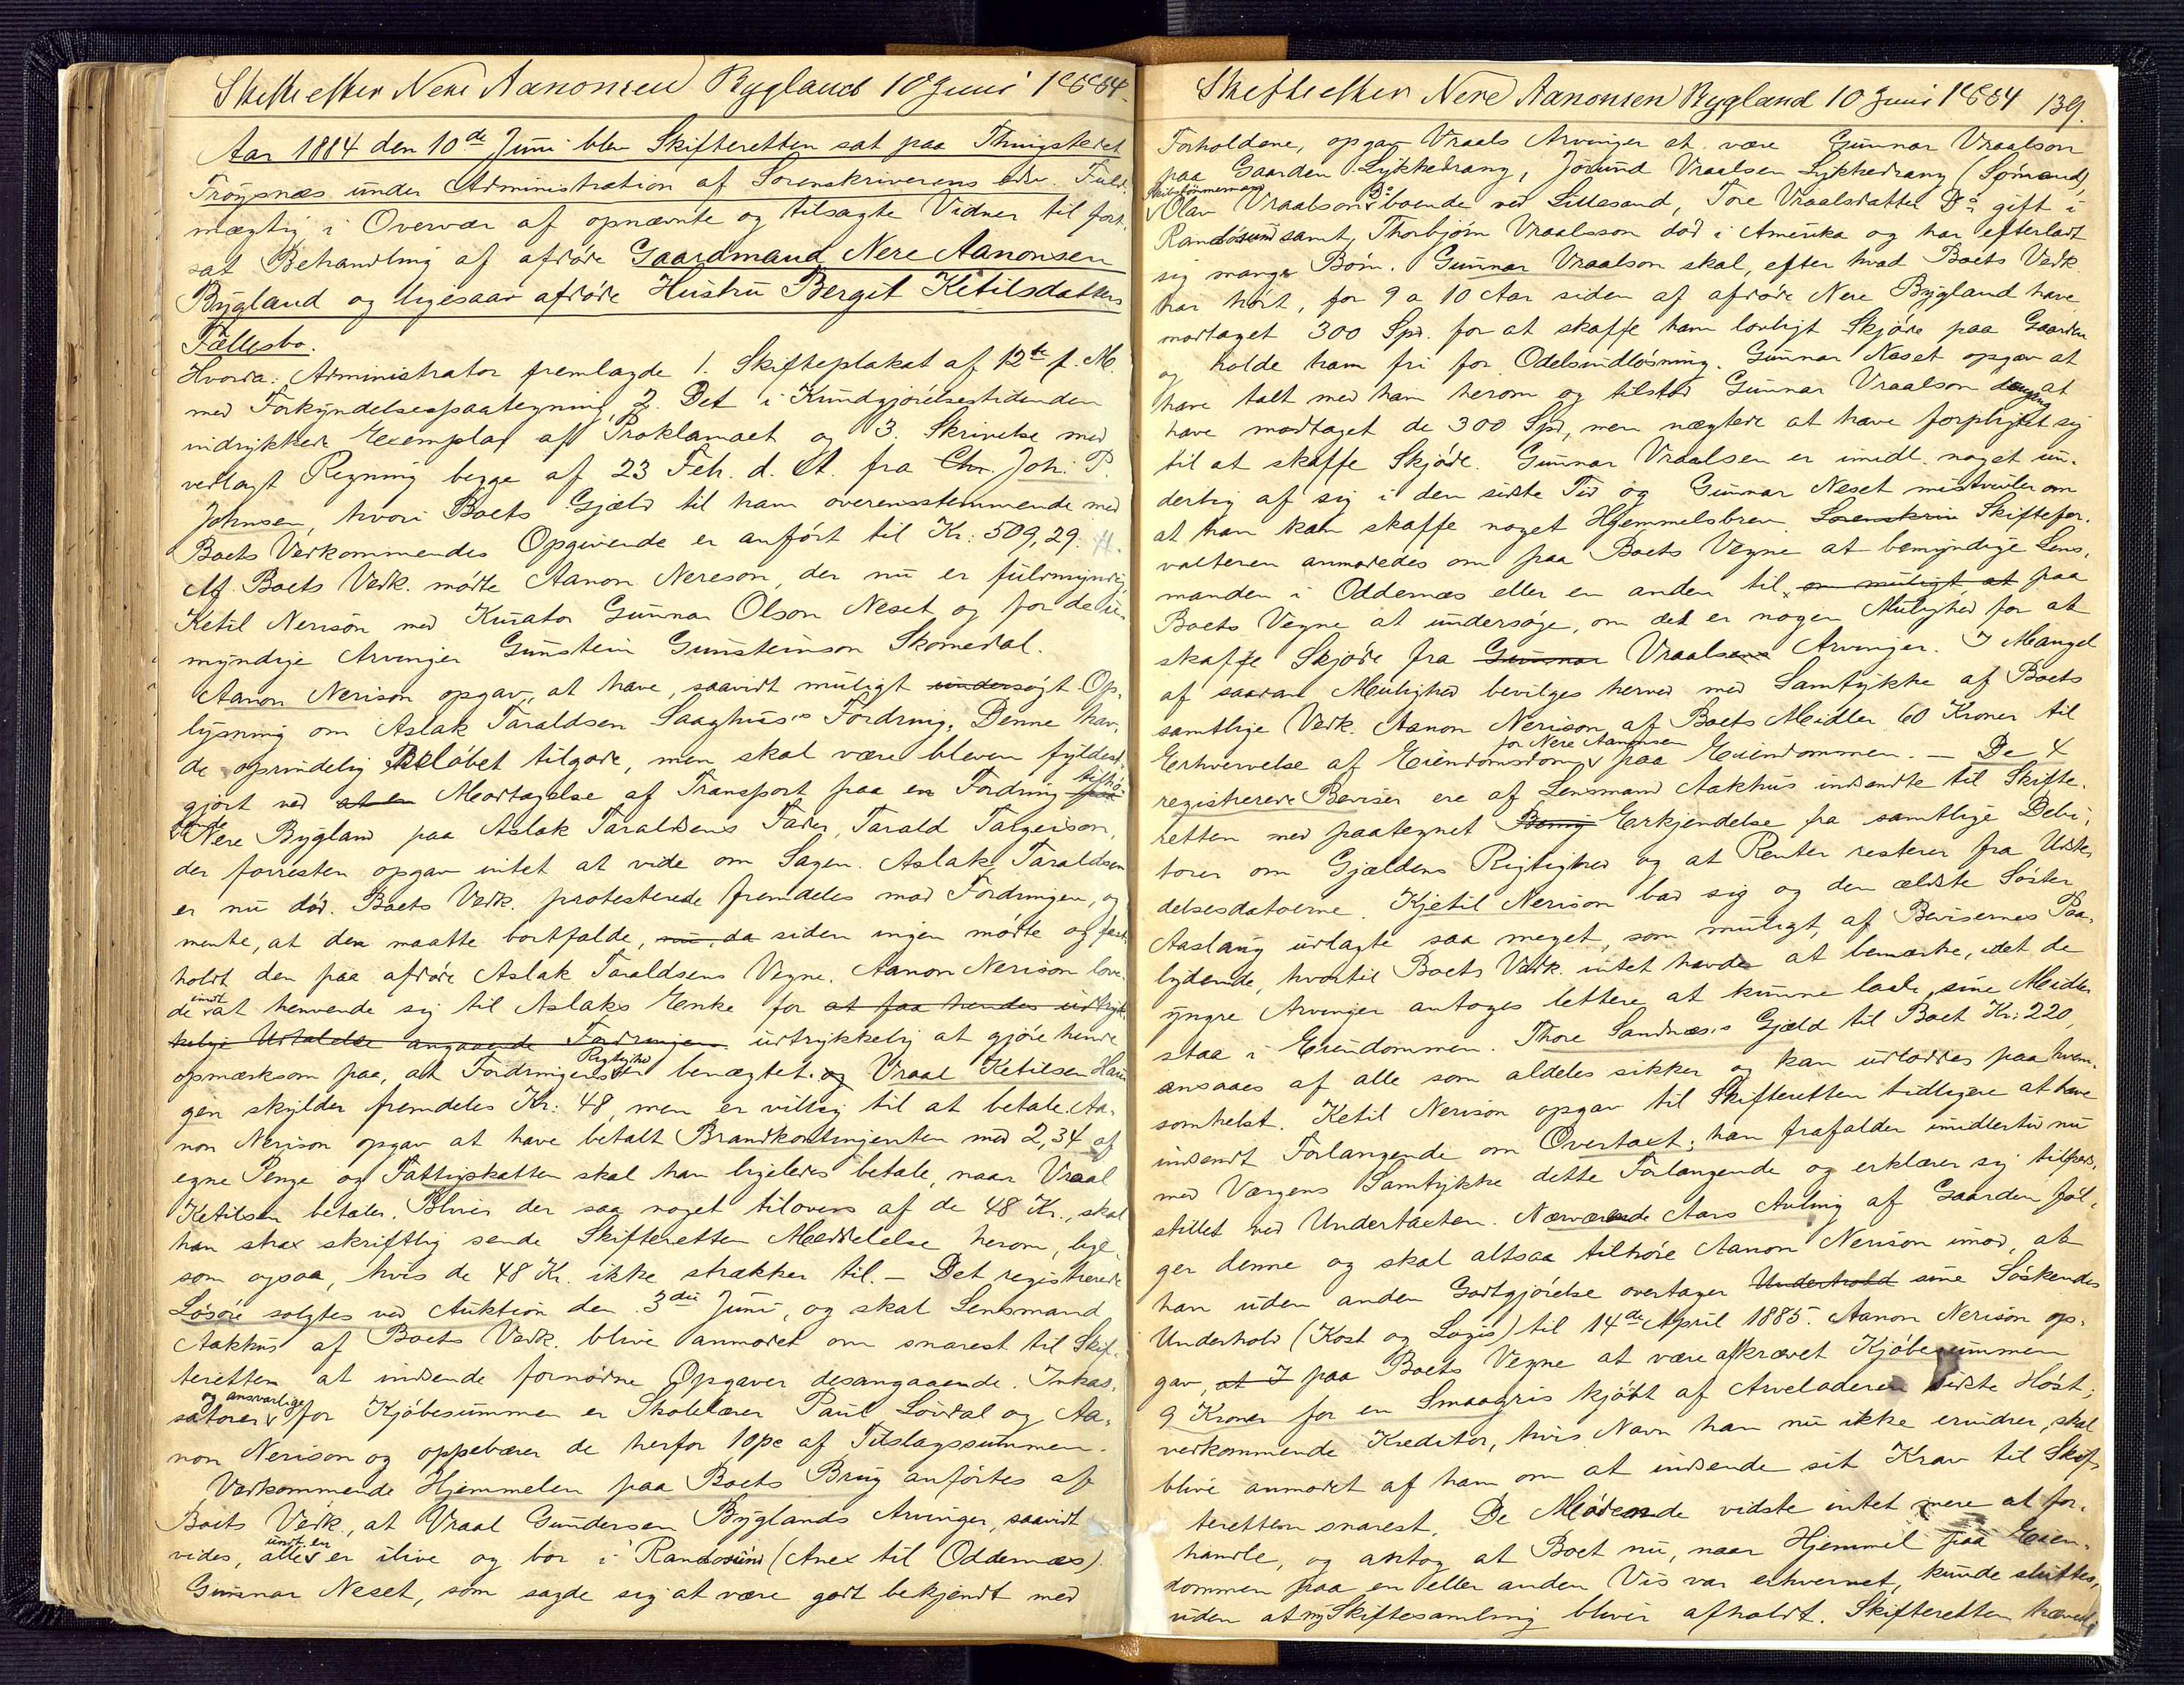 Skifte efter Nere Aanonsen Bygland 10 Juni 1884.
Aar 1884 den 10de Juni blev Skifteretten sat paa Thingstedet
Frøysnæs under Administration af Sorenskriverens edsv. Fuld-
mægtig i Overvær af opnævnte og tilsagte Vidner til fort-
sat Behandling af afdøde Gaardmand Nere Aanonsen
Bygland og ligesaa afdøde Hustru Bergit Ketilsdatters
Fællesbo.
Hvorda: Administrator fremlagde 1. Skifteplakat af 12te f. M.
med Forkyndelsespaategning, 2. Det i Kundgjørelsestidenden
indrykkede Exemplar af Proklamaet og 3. Skrivelse med
vedlagt Regning begge af 23 Feb. d. A. fra Chr. Joh. P.
Johnsen, hvori Boets Gjæld til ham overensstemmende med
Boets Vedkommendes Opgivende er anført til Kr: 509,29.
Af Boets Vedk. mødte Aanon Nereson, der nu er fuldmyndig
Ketil Nerison med Kurator Gunnar Olson Neset og for de u-
myndige Arvinger Gunstein Gunsteinson Skomedal.
Aanon Nerison opgav, at have, saavidt muligt undersøgt Op-
lysning om Aslak Taraldsen Saaghus's Fordring. Denne hav-
de oprindelig Beløbet tilgode, men skal være bleven fyldest-
gjort ved at en Modtagelse af Transport paa en Fordring paa tilhø-
rende Nere Bygland paa Aslak Taraldsens Fader, Tarald Targeison,
der forresten opgav intet at vide om Sagen. Aslak Taraldsen
er nu død. Boets Vedk. protesterede fremdeles mod Fordringen, og
mente, at den maatte bortfalde, nu, da siden ingen mødte og fast-
holdt den paa afdøde Aslak Taraldsens Vegne. Aanon Nerison love-
de indt. at henvende sig til Aslaks Enke for at faa hendes udtryk-
kelige Udtalelse angaaende Fordringen udtrykkelig at gjøre hende
opmærksom paa, at Fordringens Rigtighed er benægtet. og Vraal Ketilsen Hau-
gen skylder fremdeles Kr: 48, men er villig til at betale. Aa-
non Nerison opgav at have betalt Brandkontingenten med 2,34 af
egne Penge og Fattigskatten skal han ligeledes betale, naar Vraal
Ketilsen betaler. Bliver der saa noget tilovers af de 48 Kr., skal
han strax skriftlig sende Skifteretten Meddelelse herom, lige-
som ogsaa, hvis de 48 Kr. ikke strækker til. — Det registrerede
Løsøre solgtes ved Auktion den 3die Juni, og skal Lensmand
Aakhus af Boets Vedk. blive anmodet om snarest til Skif-
teretten at indsende fornødne Opgaver desangaaende. Inkas-
satorer og ansvarlige for Kjøbesummen er Skolelærer Paul Lovdal og Aa-
non Nerison og oppebærer de herfor 10pc af Tilslagssummen.
Vedkommende Hjemmelen paa Boets Brug anførtes af
Boets Vedk., at Vraal Gundersen Byglands Arvinger, saavidt
vides, alle undt. en er ilive og bor i Randøsund (Anex til Oddernæs).
Gunnar Neset, som sagde sig at være godt bekjendt med
Skifte efter Nere Aanonsen Bygland 10 Juni 1884 139.
Forholdene, opgav Vraals Arvinger at være Gunnar Vraalson
paa Gaarden Lykkedrang, Jørund Vraalsen Lykkedrang (Sømand),
Skibstømmermand Olav Vraalson Do boende ved Lillesand, Tore Vraalsdatter Do gift i
Randøsund samt Thorbjørn Vraalsson død i Amerika og har efterladt
sig mange Børn. Gunnar Vraalson skal, efter hvad Boets Vedk.
har hørt, for 9 a 10 Aar siden af afdøde Nere Bygland have
modtaget 300 Spd. for at skaffe ham lovligt Skjøde paa Gaarden
og holde ham fri for Odelsindløsning. Gunnar Neset opgav at
have talt med ham herom og tilstod Gunnar Vraalson dengang at
have modtaget de 300 Spd, men nægtede at have forpligtet sig
til at skaffe Skjøde. Gunnar Vraalsen er imidl. noget un-
derlig af sig i den sidste Tid og Gunnar Neset mistvivler om
at han kan skaffe noget Hjemmelsbrev. Sorenskriv Skiftefor-
valteren anmodedes om paa Boets Vegne at bemyndige Lens-
manden i Oddernæs eller en anden til, om muligt, at paa
Boets Vegne at undersøge, om det er nogen Mulighed for at
skaffe Skjøde fra Gunnar Vraalsens Arvinger. I Mangel
af saadan Mulighed bevilges herved med Samtykke af Boets
samtlige Vedk. Aanon Nerison af Boets Midler 60 Kroner til
Erhvervelse af Eiendomsdom for Nere Aanonsen paa Eiendommen. — De 4
registrerede Beviser ere af Lensmand Aakhus indsendte til Skifte-
retten med paategnet Erkjendelse fra samtlige Debi-
torer om Gjældens Rigtighed og at Renter resterer fra Udste-
delsesdatoerne. Kjetil Nerison bad sig og den ældste Søster
Aaslaug udlagte saa meget, som muligt, af Bevisernes Paa-
lydende, hvortil Boets Vedk. intet havde at bemærke, idet de
yngre Arvinger antoges lettere at kunne lade sine Midler
staa i Eiendommen. Thore Sandnæs's Gjæld til Boet Kr: 220,
ansaaes af alle som aldeles sikker og kan udloddes paa hvem-
somhelst. Ketil Nerison opgav til Skifteretten tidligere at have
indsendt Forlangende om Overtaxt; han frafalder imidlertid nu
med Værgens Samtykke dette Forlangende og erklærer sig tilfreds-
stillet ved Undertaxten. Nærværende Aars Avling af Gaarden føl-
ger denne og skal altsaa tilhøre Aanon Nerison imod, at
han uden anden Godtgjørelse overtager Underhold sine Søskendes
Underhold (Kost og Logis) til 14de April 1885. Aanon Nerison op-
gav, at I paa Boets Vegne at være afkrævet Kjøbesummen
9 Kroner for en Smaagris kjøbt af Arveladeren sidste Høst;
vedkommende Kreditor, hvis Navn han nu ikke erindrer, skal
blive anmodet af ham om at indsende sit Krav til Skif-
teretten snarest. De Mødende vidste intet mere at for-
handle, og antog at Boet nu, naar Hjemmel paa Eien-
dommen paa en eller anden Vis var erhvervet, kunde sluttes,
uden at ny Skiftesamling bliver afholdt. Skifteretten hævet.